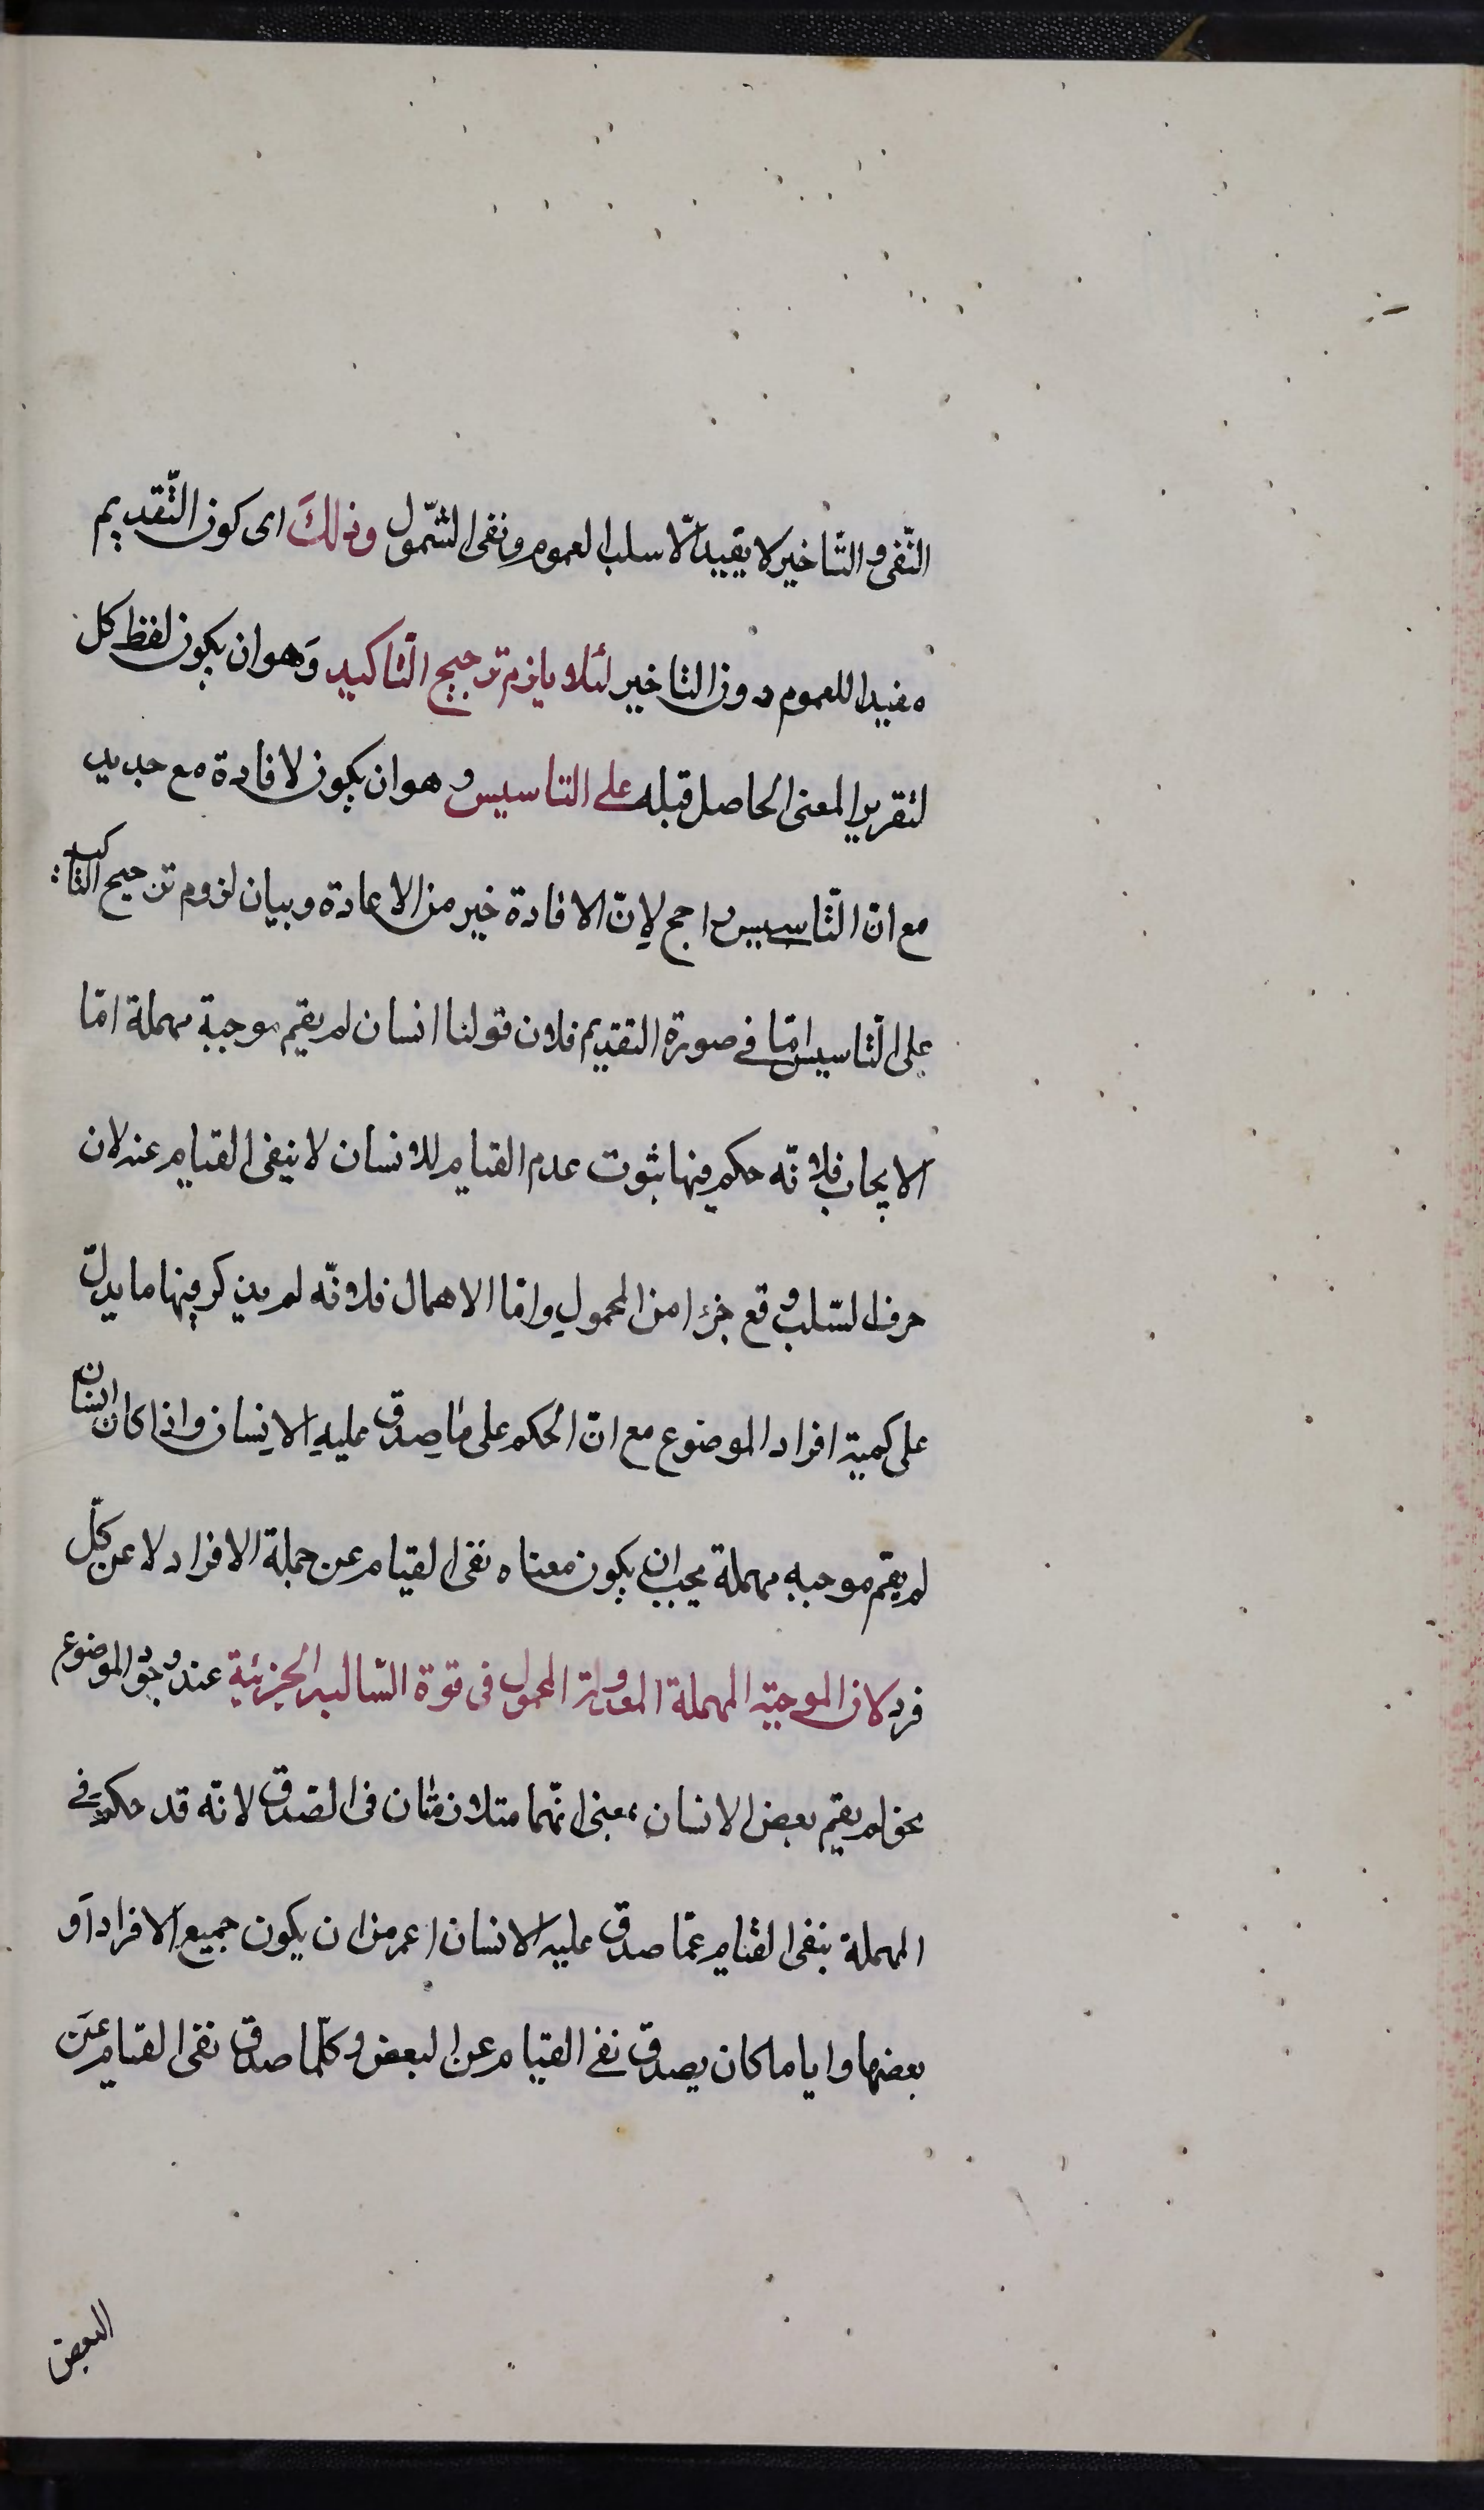 النّفى والتّاخير لا يفيد الّا سلب العموم ونفى الشّمول وذلكَ اى كون التّقديم
مفيدا للعموم دون التاخير لئلا يلزم ترجيح التّاكيد وَهو ان يكون لفظ كل
لتقرير المعنى الحاصل قبله على التاسيس وهو ان يكون لافادة مع جديد
مع انّ التّاسيس راجح لِانّ الافادة خير من الاعادة وبيان لزوم ترجيح التاكيد
على التّاسيس امّا في صورة التقديم فلان قولنا انسان لم يقم موجبة مهملة امّا
الايجاب فلانّه حكم فيها بثوت عدم القيام للانسان لا بنفى القيام عنه لان
حرف السّلب وقع جزءا من المحمولِ وامّا الاهمال فلانّه لم يذكر فيها ما يدلّ
على كمية افراد الموضوع مع انّ الحكم على ما صدق عليهِ الانسان واذا كان انسان
لم يقم موجبه مهملة يجب ان يكون معناه نفى القيام عن جملة الافراد لا عن كلّ
فرد لان الموجبة المهملة المعدولة المحمول فى قوة السّالبه الجزئية عند وجود الموضوع
نحو لم يقم بعض الانسان بمعنى انّهما متلازمان فى الصّدق لانّه قد حكم في
المهملة بنفى القيام عمّا صدق عليه الانسان اعم من ان يكون جميع الافراد او
بعضها وايا ما كان يصدق نفى القيام عن البعض وكلّما صدق نفى القيام عن
البعض